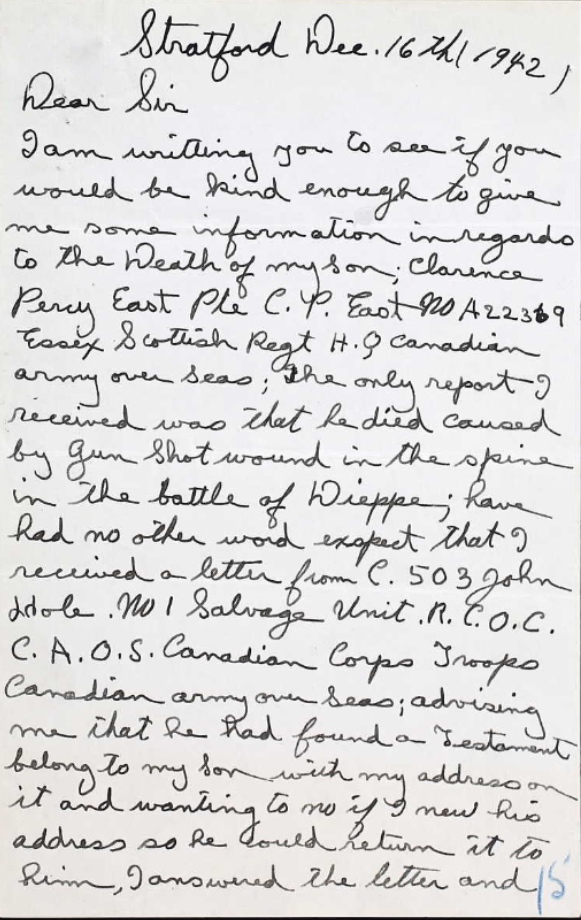 Stratford Dec. 16th/1942)
Dear Sir
I am writting you to see if you
would be kind enough to give
me some information in regards
to the Death of my son; Clarence
Percy East Pte C. P. East No A22369
Essex Scottish Regt H.Q Canadian
army over seas; The only report I
received was that he died caused
by Gun Shot wound in the spine
in the battle of Dieppe; have
had no other word exspect that I
received a letter from C. 503 John
Hole. No 1 Salvage Unit. R.C.O.C.
C.A.O.S. Canadian Corps Troops
Canadian army over seas; advising
me that he had found a Testament
belong to my son with my address on
it and wanting to no if I new his
address so he could return it to
him, I answered the letter and
15